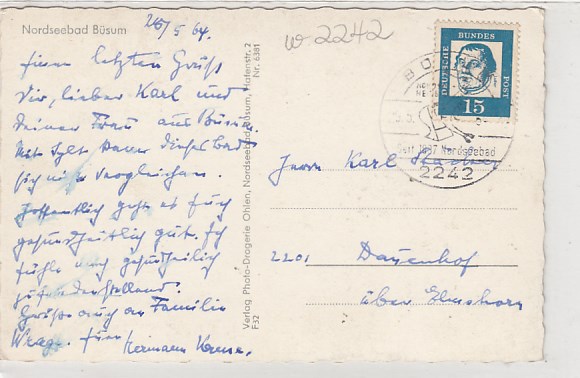 Nordseebad Büsum
25/5 64.
w 2242
einen letzten Gruß
Dir, lieber Karl und
Deiner Frau aus Büsum.
Mit Sylt dieses Bad
sich nie vergleichen.
Hoffentlich geht es Euch
gesundheitlich gut. Ich
fühle mich gesundheitlich
zufriedenstellend.
Grüße auch an Familie
Euer
Hermann
Verlag Photo-Drogerie Ohlen, Nordseebad Büsum, Hafenstr. 2
F52 Nr. 6381
DEUTSCHE BUNDES POST
15
seit 1837 Nordseebad
2242
Herrn Karl
2201 Dauenhof
über Elmshorn